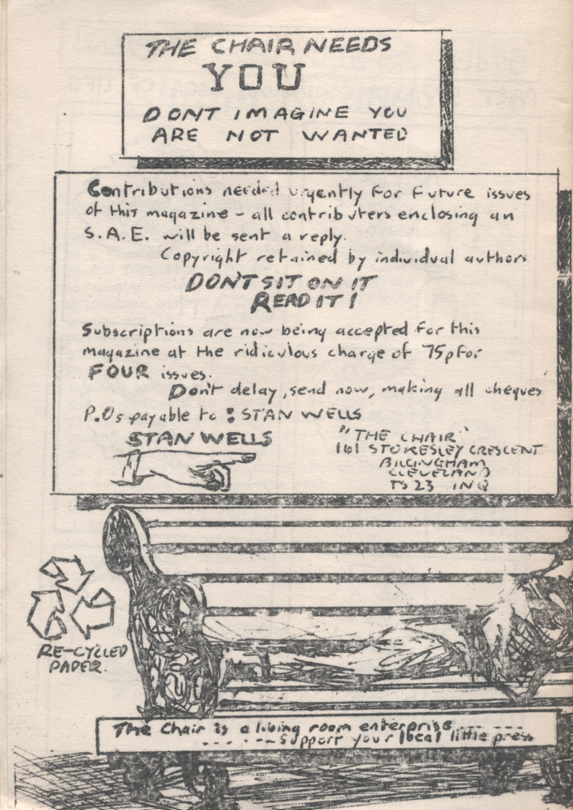 THE CHAIR NEEDS
YOU
DONT IMAGINE YOU
ARE NOT WANTED
Contributions needed urgently for future issues
of this magazine - all contributers enclosing an
S.A.E. will be sent a reply.
Copyright retained by individual authors
DON'T SIT ON IT
READ IT!
Subscriptions are now being accepted for this
magazine at the ridiculous charge of 75p for
FOUR issues.
Don't delay, send now, making all cheques
P.Os payable to : STAN WELLS
STAN WELLS
"THE CHAIR"
161 STOKESLEY CRESCENT
BILLINGHAM
CLEVELAND
TS23 1NQ
RE-CYCLED
PAPER.
The Chair is a living room enterprise ----
---- support your local little press